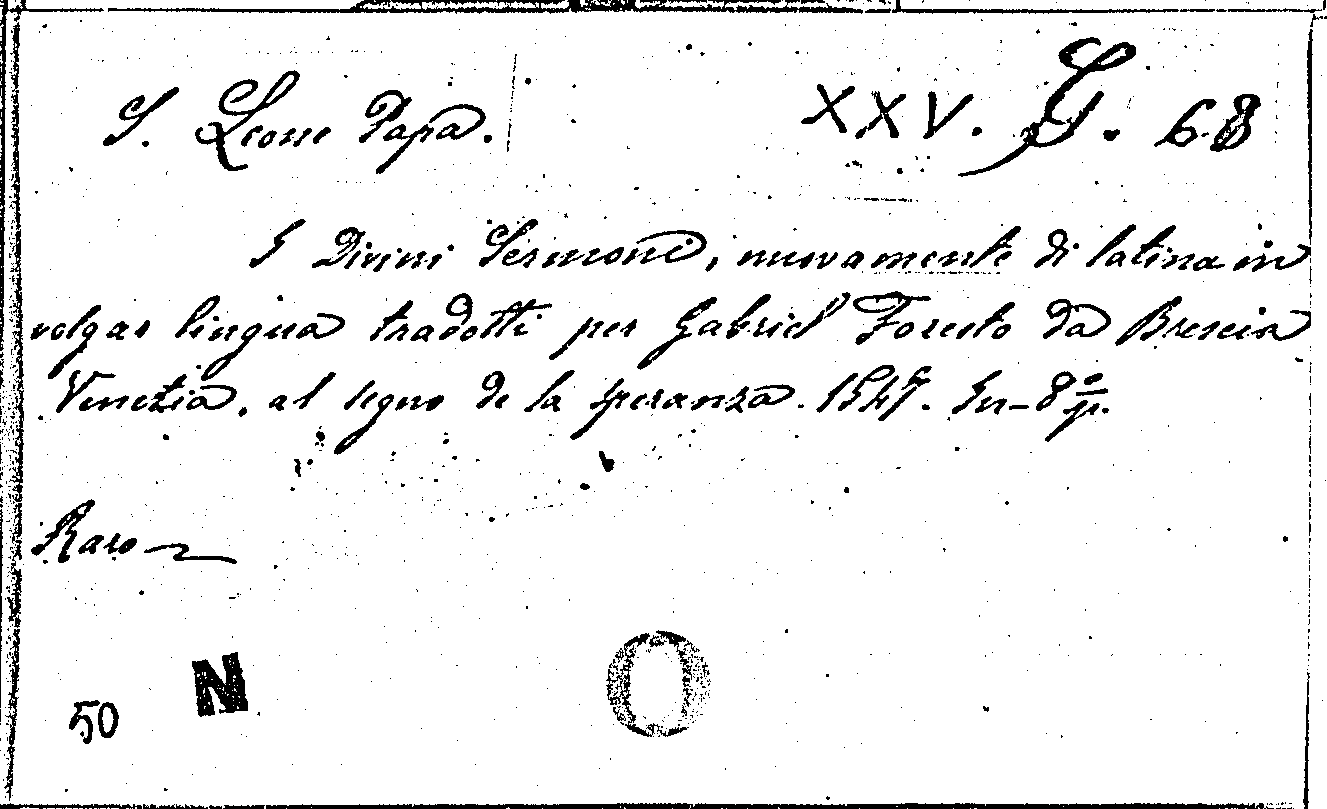 S. Leone Papa. XXV. G. 68
I Divini Sermoni, nuovamente di latina in
volgar lingua tradotti per Gabriel Foresto da Brescia
Venezia, al segno de la speranza. 1547. In-8º p.
Raro
50 N O